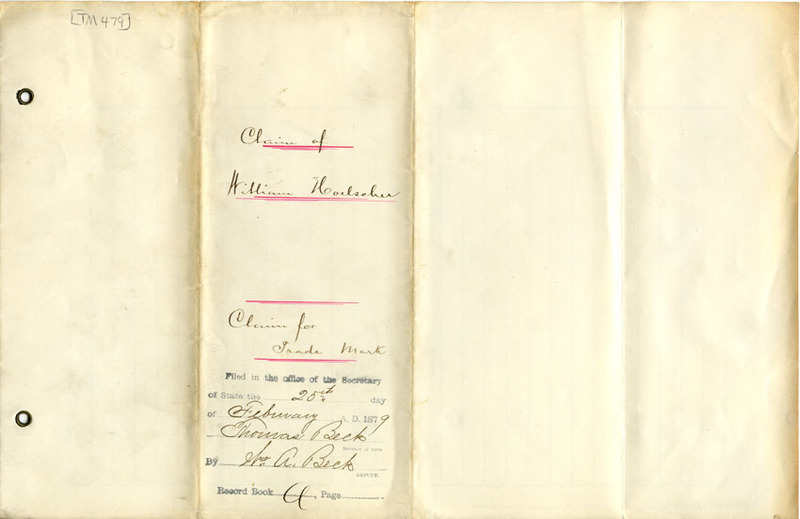 [TM 479]
Claim of
William Hoelscher
Claim for
Trade Mark
Filed in the office of the Secretary
of State the 25th day
of February A. D. 1879
Thomas Beck
Secretary of State
By Wm A. Beck
DEPUTY.
Record Book A, Page